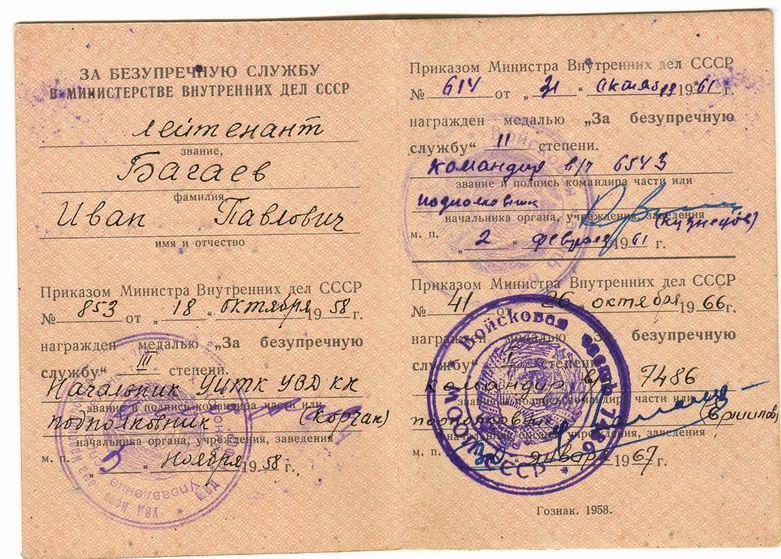 ЗА БЕЗУПРЕЧНУЮ СЛУЖБУ
В МИНИСТЕРСТВЕ ВНУТРЕННИХ ДЕЛ СССР
лейтенант
звание,
Багаев
фамилия
Иван Павлович
имя и отчество
Приказом Министра Внутренних дел СССР
№ 853 от „ 18 “ октября 1958 г.
награжден медалью „За безупречную
службу“ III степени.
Начальник УИТК УВД КК
звание и подпись командира части или
подполковник (Корчак)
начальника органа, учреждения, заведения
м. п. „ 5 “ Ноября 1958 г.
Приказом Министра Внутренних дел СССР
№ 614 от „ 31 “ октября 1961 г.
награжден медалью „За безупречную
службу“ II степени.
Командир в/ч 6543
звание и подпись командира части или
подполковник
начальника органа, учреждения, заведения
(Кузнецов)
м. п. „ 2 “ февраля 1961 г.
Приказом Министра Внутренних дел СССР
№ 41 от 26 октября 1966 г.
награжден медалью „За безупречную
службу“ I степени.
Командир в/ч 7486
звание и подпись командира части или
подполковник
начальника органа, учреждения, заведения
м. п. января 1967 г.
Войсковая часть
СССР
Гознак. 1958.